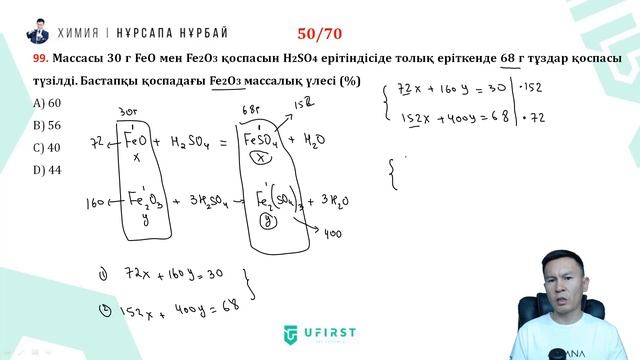 ХИМИЯ | НҰРСАПА НҰРБАЙ
50/70
99. Массасы 30 г FeO мен Fe₂O₃ қоспасын H₂SO₄ ерітіндісіде толық еріткенде 68 г тұздар қоспасы
түзілді. Бастапқы қоспадағы Fe₂O₃ массалық үлесі (%)
A) 60
B) 56
C) 40
D) 44
30г
68г
152
72 FeO + H₂SO₄ = FeSO₄ + H₂O
x x
160 Fe₂O₃ + 3H₂SO₄ → Fe₂(SO₄)₃ + 3H₂O
y y
400
1) 72x + 160y = 30
2) 152x + 400y = 68
72x + 160y = 30 | ·152
152x + 400y = 68 | ·72
UFIRST